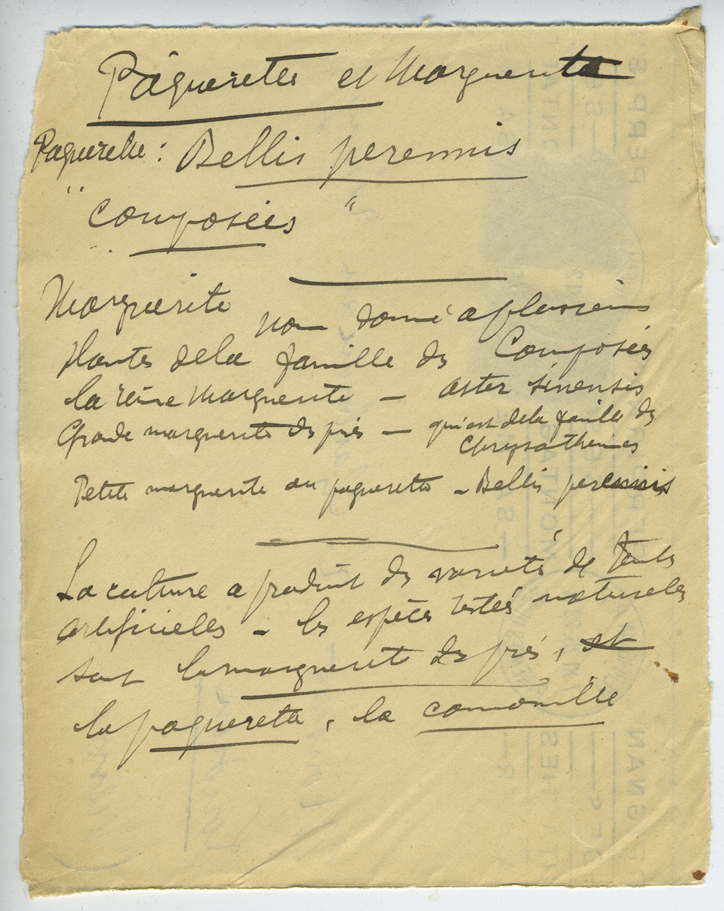 Pâquerettes et Marguerites
Paquerette : Bellis perennis
" Composées "
Marguerite nom donné à plusieurs
plantes de la famille des Composées
la reine Marguerite — aster sinensis
Grande marguerite des prés — qui est de la famille des
Chrysanthèmes
Petite marguerite ou paquerette — Bellis perennis
La culture a produit des variétés de teintes
artificielles — les espèces restées naturelles
sont la marguerite des prés, et
la paquerette, la camomille